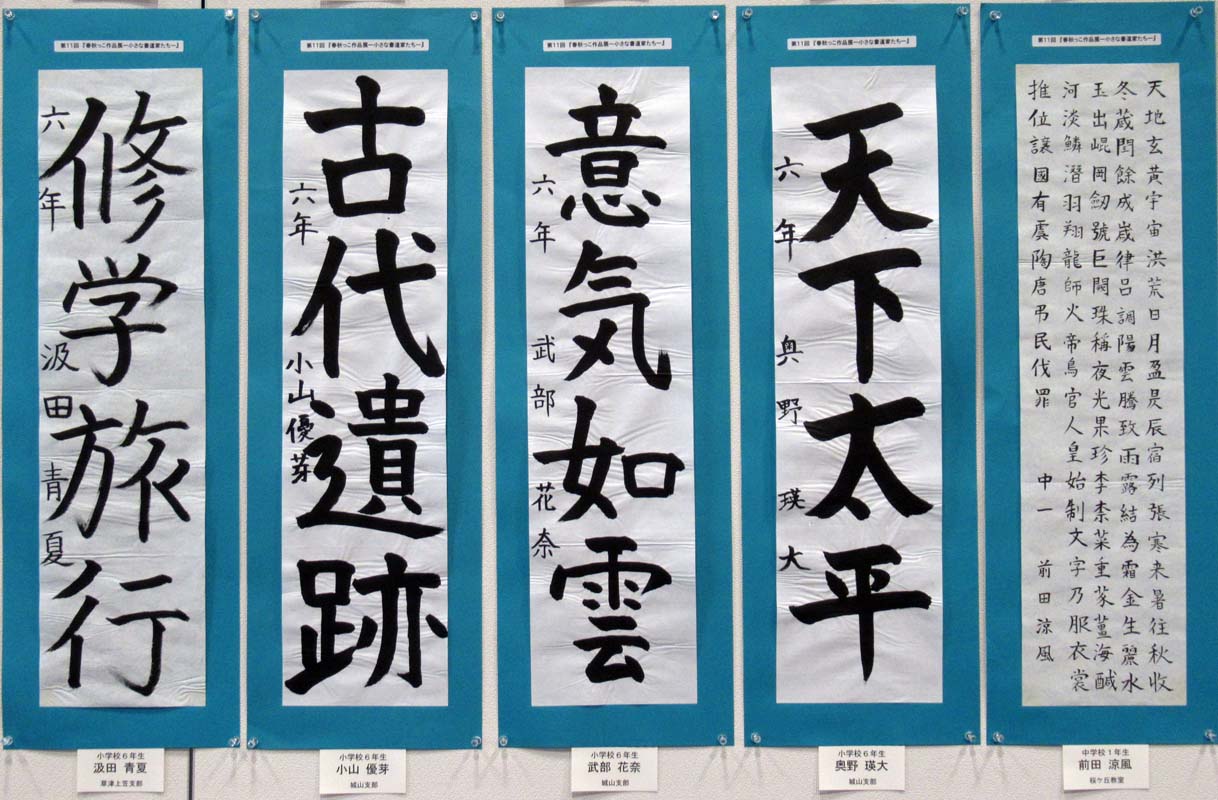 第11回『春秋っこ作品展ー小さな書道家たちー』
修学旅行
六年 汲田 青夏
小学校6年生
汲田 青夏
草津上笠支部
第11回『春秋っこ作品展ー小さな書道家たちー』
古代遺跡
六年 小山優芽
小学校6年生
小山 優芽
城山支部
第11回『春秋っこ作品展ー小さな書道家たちー』
意気如雲
六年 武部 花奈
小学校6年生
武部 花奈
城山支部
第11回『春秋っこ作品展ー小さな書道家たちー』
天下太平
六年 奥野 瑛大
小学校6年生
奥野 瑛大
城山支部
第11回『春秋っこ作品展ー小さな書道家たちー』
天地玄黄宇宙洪荒日月盈昃辰宿列張寒来暑往秋收
冬蔵閏餘成歳律呂調陽雲騰致雨露結為霜金生麗水
玉出崐岡劒號巨闕珠稱夜光果珍李柰菜重芥薑海醎
河淡鱗潛羽翔龍師火帝鳥官人皇始制文字乃服衣裳
推位讓國有虞陶唐弔民伐罪 中一 前田涼風
中学校1年生
前田 涼風
桜ケ丘教室